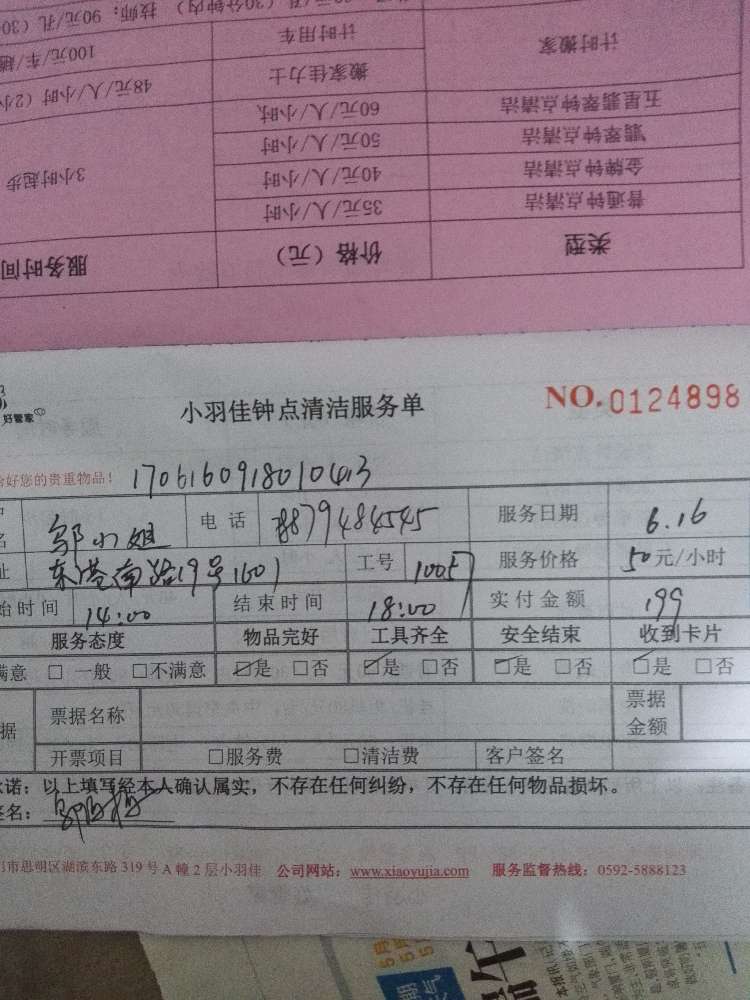 (30分钟内) 技师：90元/孔 (30
计时搬家 计时用车 100元/车/趟
搬家佳力士 48元/人/小时 (2小
五星翡翠钟点清洁 60元/人/小时
翡翠钟点清洁 50元/人/小时
金牌钟点清洁 40元/人/小时 3小时起步
普通钟点清洁 35元/人/小时
类型 价格（元） 服务时间
好管家
小羽佳钟点清洁服务单 NO.0124898
好您的贵重物品！ 1706160918010413
名 邬小姐 电话 18879484545 服务日期 6.16
址 东港南路19号1601 工号 1005 服务价格 50元/小时
始时间 14:00 结束时间 18:00 实付金额 199
服务态度 物品完好 工具齐全 安全结束 收到卡片
满意 □一般 □不满意 ☑是 □否 ☑是 □否 ☑是 □否 ☑是 □否
据 票据名称 票据金额
开票项目 □服务费 □清洁费 客户签名
承诺：以上填写经本人确认属实，不存在任何纠纷，不存在任何物品损坏。
签名：
市思明区湖滨东路319号A幢2层小羽佳 公司网站：www.xiaoyujia.com 服务监督热线：0592-5888123